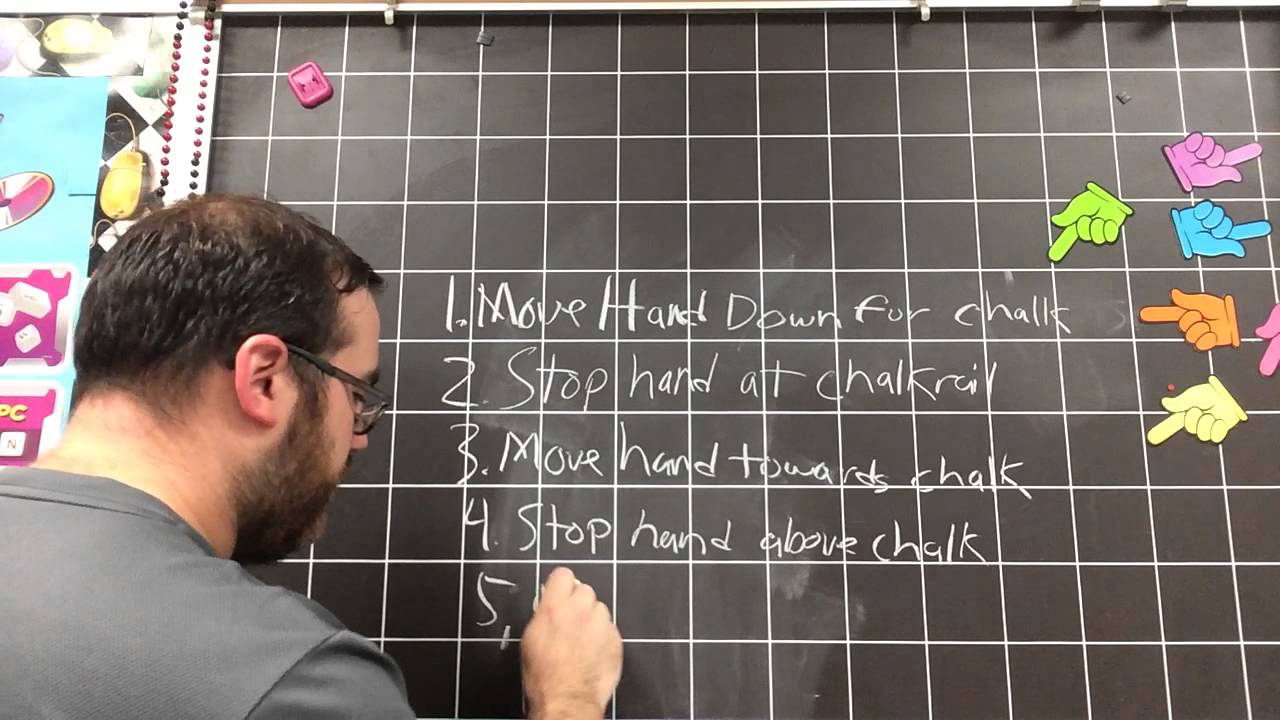 1. Move Hand Down for chalk
2. Stop hand at chalkrail
3. Move hand towards chalk
4. Stop hand above chalk
5.
PC
N